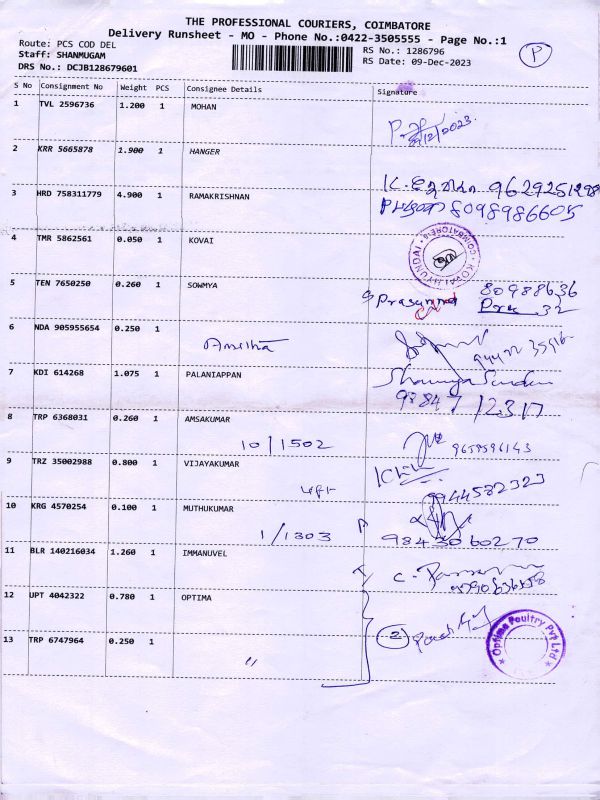 THE PROFESSIONAL COURIERS, COIMBATORE
Delivery Runsheet - MO - Phone No.:0422-3505555 - Page No.:1
Route: PCS COD DEL
RS No.: 1286796
Staff: SHANMUGAM
RS Date: 09-Dec-2023
DRS No.: DCJB128679601
P
S No Consignment No Weight PCS Consignee Details Signature
1 TVL 2596736 1.200 1 MOHAN
2 KRR 5665878 1.900 1 HANGER
3 HRD 758311779 4.900 1 RAMAKRISHNAN
8098986605
4 TMR 5862561 0.050 1 KOVAI
5 TEN 7650250 0.260 1 SOWMYA
Prasanna
6 NDA 905955654 0.250 1
7 KDI 614268 1.075 1 PALANIAPPAN
8 TRP 6368031 0.260 1 AMSAKUMAR
10/1502
9659596143
9 TRZ 35002988 0.800 1 VIJAYAKUMAR
9944582323
10 KRG 4570254 0.100 1 MUTHUKUMAR
1/1303
9843060270
11 BLR 140216034 1.260 1 IMMANUVEL
12 UPT 4042322 0.780 1 OPTIMA
2
Optima Poultry Pvt Ltd
13 TRP 6747964 0.250 1
"